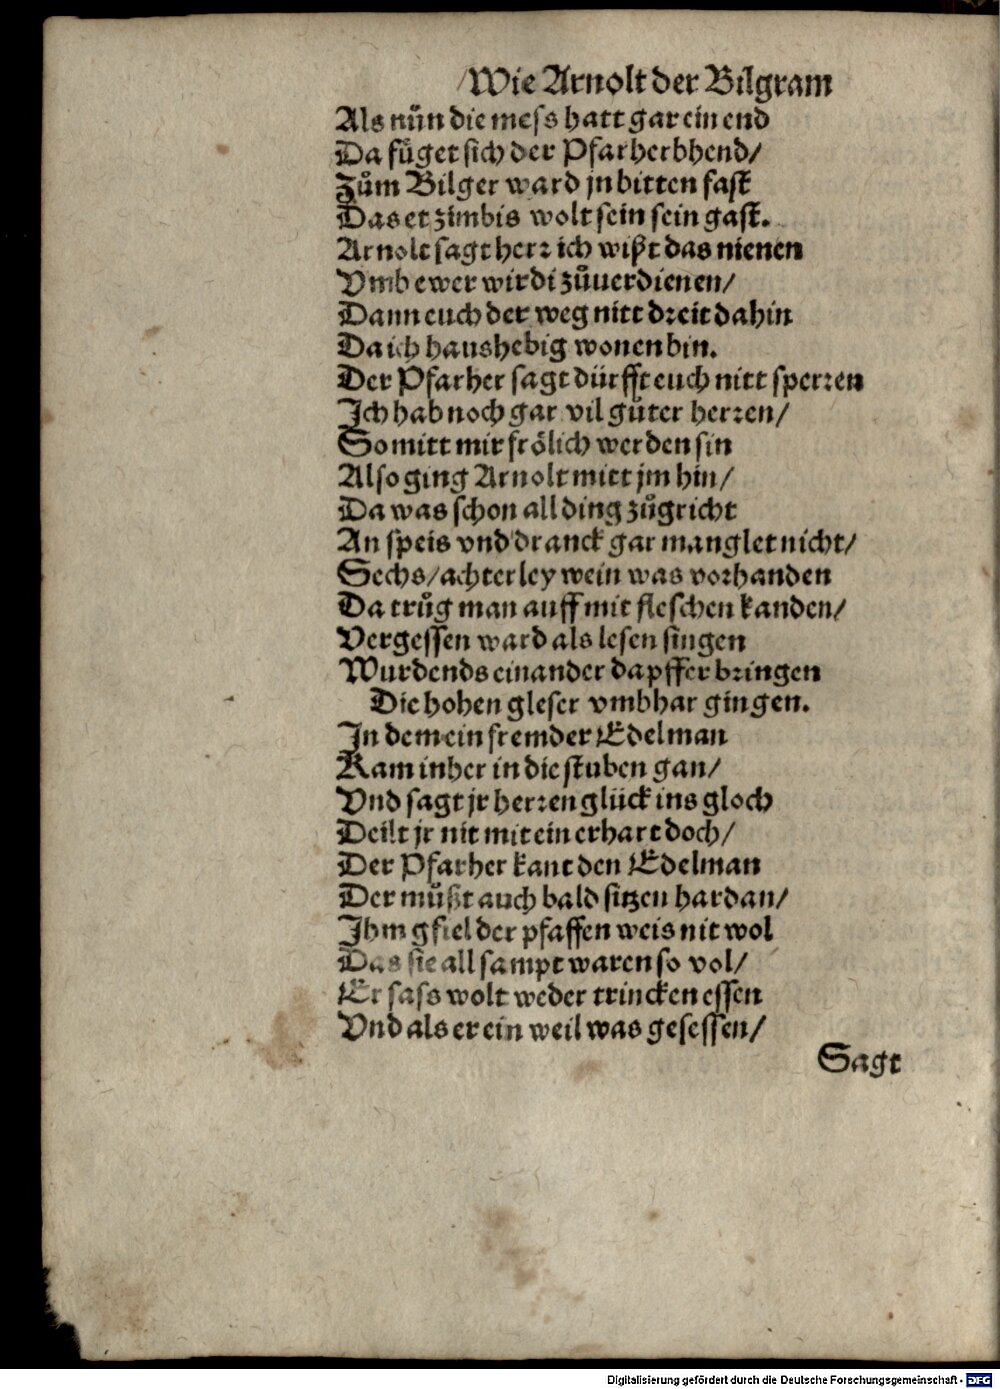 Wie Arnolt der Bilgram
Als nůn die mess hatt gar ein end
Da fůget sich der Pfarher bhend/
Zům Bilger ward jn bitten fast
Das er zimbis wolt sein sein gast.
Arnolt sagt herr ich wißt das nienen
Vmb ewer wirdi zůuerdienen/
Dann euch der weg nitt dreit dahin
Da ich haushebig wonen bin.
Der Pfarher sagt dürfft euch nitt sperren
Ich hab noch gar vil gůter herren/
So mitt mir frölich werden sin
Also ging Arnolt mitt jm hin/
Da was schon all ding zůgricht
An speis vnd dranck gar manglet nicht/
Sechs/achterley wein was vorhanden
Da trůg man auff mit fleschen kanden/
Vergessen ward als lesen singen
Wurdends einander dapffer bringen
Die hohen gleser vmbhar gingen.
In dem ein fremder Edelman
Kam inher in die stuben gan/
Vnd sagt jr herren glück ins gloch
Deilt jr nit mit ein erhart doch/
Der Pfarher kant den Edelman
Der můßt auch bald sitzen hardan/
Ihm gfiel der pfaffen weis nit wol
Das sie all sampt waren so vol/
Er sass wolt weder trincken essen
Vnd als er ein weil was gesessen/
Sagt
Digitalisierung gefördert durch die Deutsche Forschungsgemeinschaft - DFG